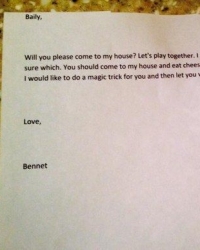 Baily,
Will you please come to my house? Let's play together. I
sure which. You should come to my house and eat chees
I would like to do a magic trick for you and then let you
Love,
Bennet